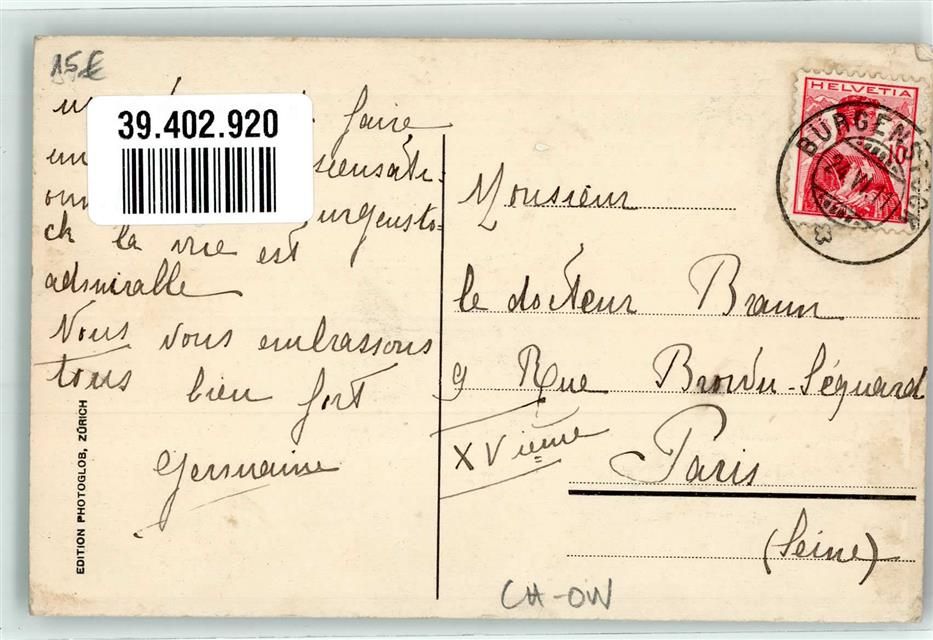 15€
39.402.920
faire
sensati-
urgensto-
ck la vue est
admirable
Nous vous embrassons
tous bien fort
Germaine
EDITION PHOTOGLOB, ZÜRICH
HELVETIA
BÜRGENSTOCK
Monsieur
le docteur Braun
9 Rue Brown-Séquard
XVième
Paris
(Seine)
CH-OW